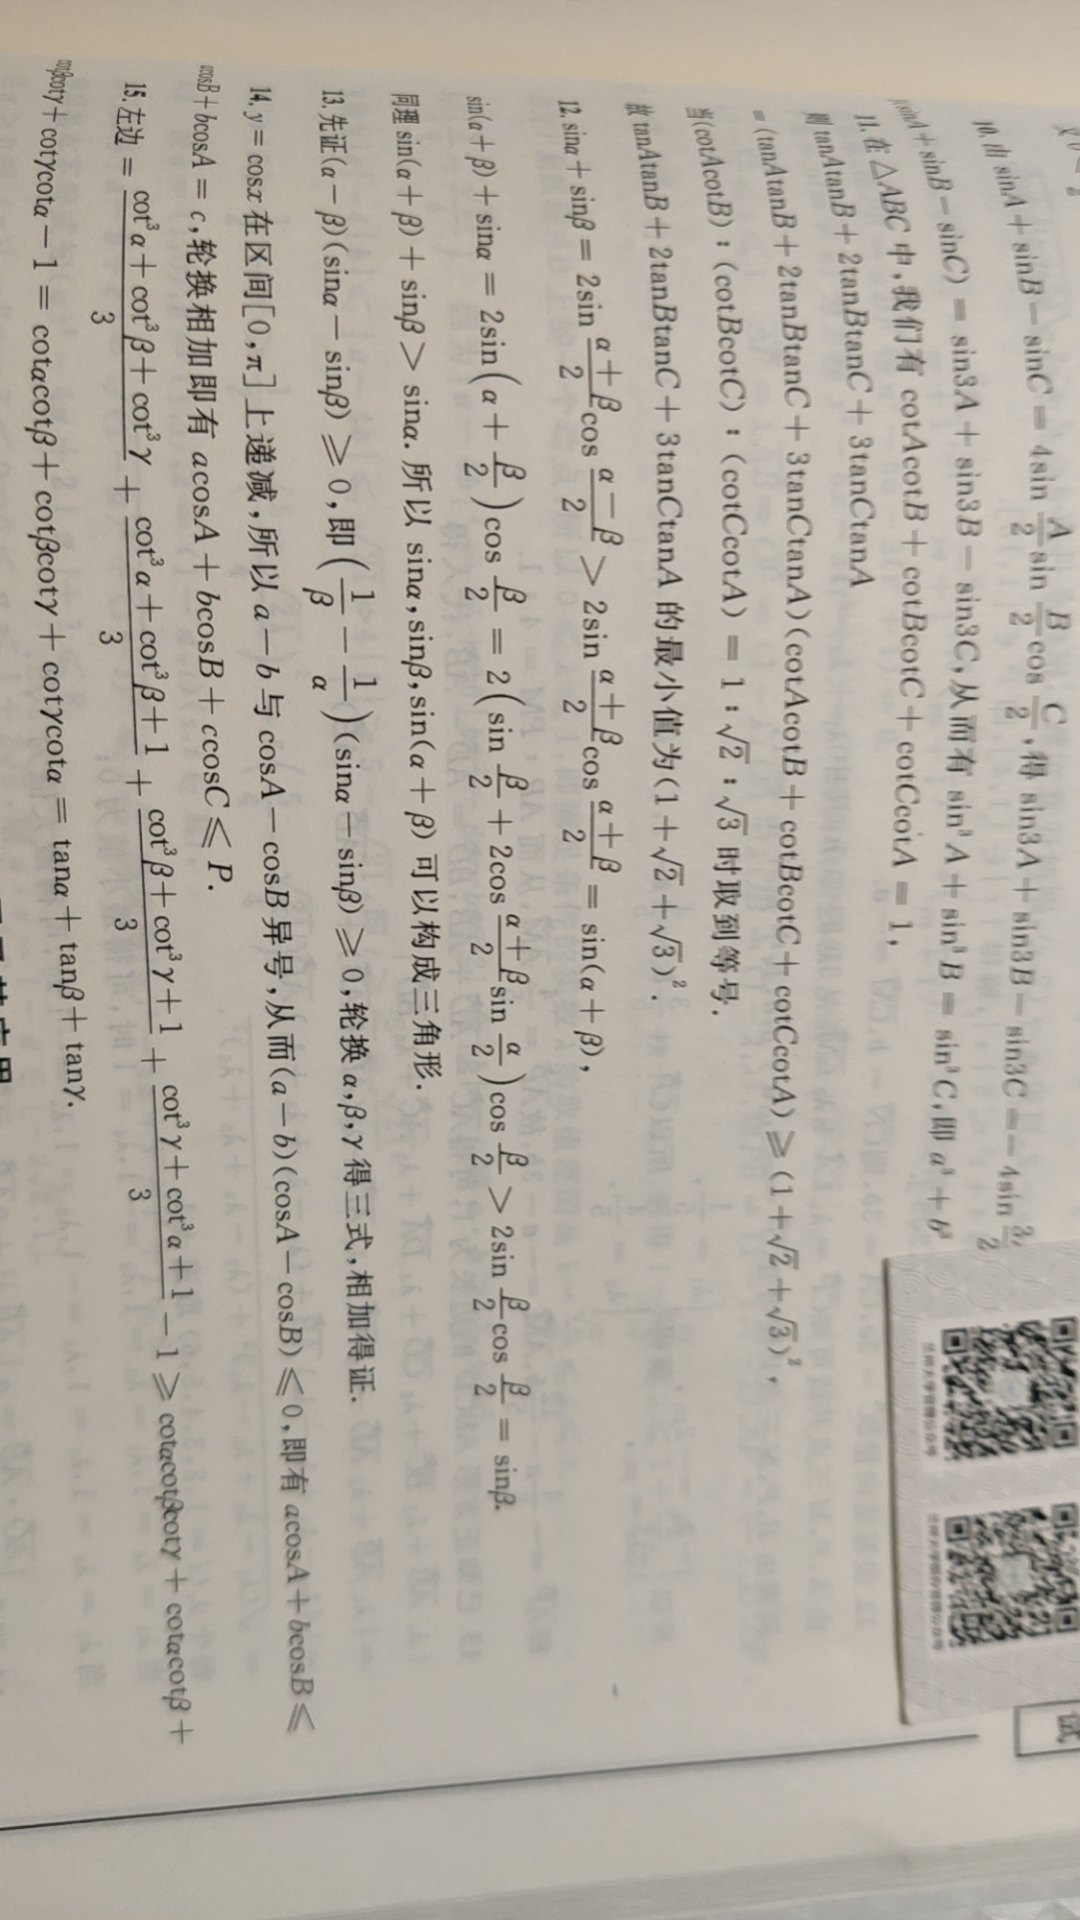 10. 由 sinA + sinB − sinC = 4sin A/2 sin B/2 cos C/2, 得 sin3A + sin3B − sin3C = −4sin 3
sinA + sinB − sinC) = sin3A + sin3B − sin3C, 从而有 sin³A + sin³B = sin³C, 即 a³ + b³
11. 在△ABC 中, 我们有 cotAcotB + cotBcotC + cotCcotA = 1,
则 tanAtanB + 2tanBtanC + 3tanCtanA
= (tanAtanB + 2tanBtanC + 3tanCtanA)(cotAcotB + cotBcotC + cotCcotA) ≥ (1+√2+√3)²,
当(cotAcotB) : (cotBcotC) : (cotCcotA) = 1 : √2 : √3 时取到等号.
故 tanAtanB + 2tanBtanC + 3tanCtanA 的最小值为(1+√2+√3)².
12. sinα + sinβ = 2sin (α+β)/2 cos (α−β)/2 > 2sin (α+β)/2 cos (α+β)/2 = sin(α+β),
sin(α+β) + sinα = 2sin(α + β/2)cos β/2 = 2(sin β/2 + 2cos (α+β)/2 sin α/2)cos β/2 > 2sin β/2 cos β/2 = sinβ.
同理 sin(α+β) + sinβ > sinα. 所以 sinα, sinβ, sin(α+β) 可以构成三角形.
13. 先证(α−β)(sinα−sinβ) ≥ 0, 即(1/β − 1/α)(sinα−sinβ) ≥ 0, 轮换 α, β, γ 得三式, 相加得证.
14. y = cosx 在区间[0, π]上递减, 所以 a−b 与 cosA−cosB 异号, 从而(a−b)(cosA−cosB) ≤ 0, 即有 acosA + bcosB ≤
acosB + bcosA = c, 轮换相加即有 acosA + bcosB + ccosC ≤ P.
15. 左边 = (cot³α + cot³β + cot³γ)/3 + (cot³α + cot³β + 1)/3 + (cot³β + cot³γ + 1)/3 + (cot³γ + cot³α + 1)/3 − 1 ≥ cotαcotβcotγ + cotαcotβ +
cotβcotγ + cotγcotα − 1 = cotαcotβ + cotβcotγ + cotγcotα = tanα + tanβ + tanγ.
试